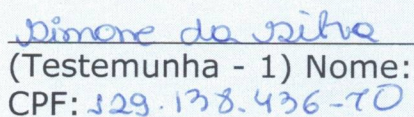 Simone da Silva
(Testemunha - 1) Nome:
CPF: 129.138.436-70